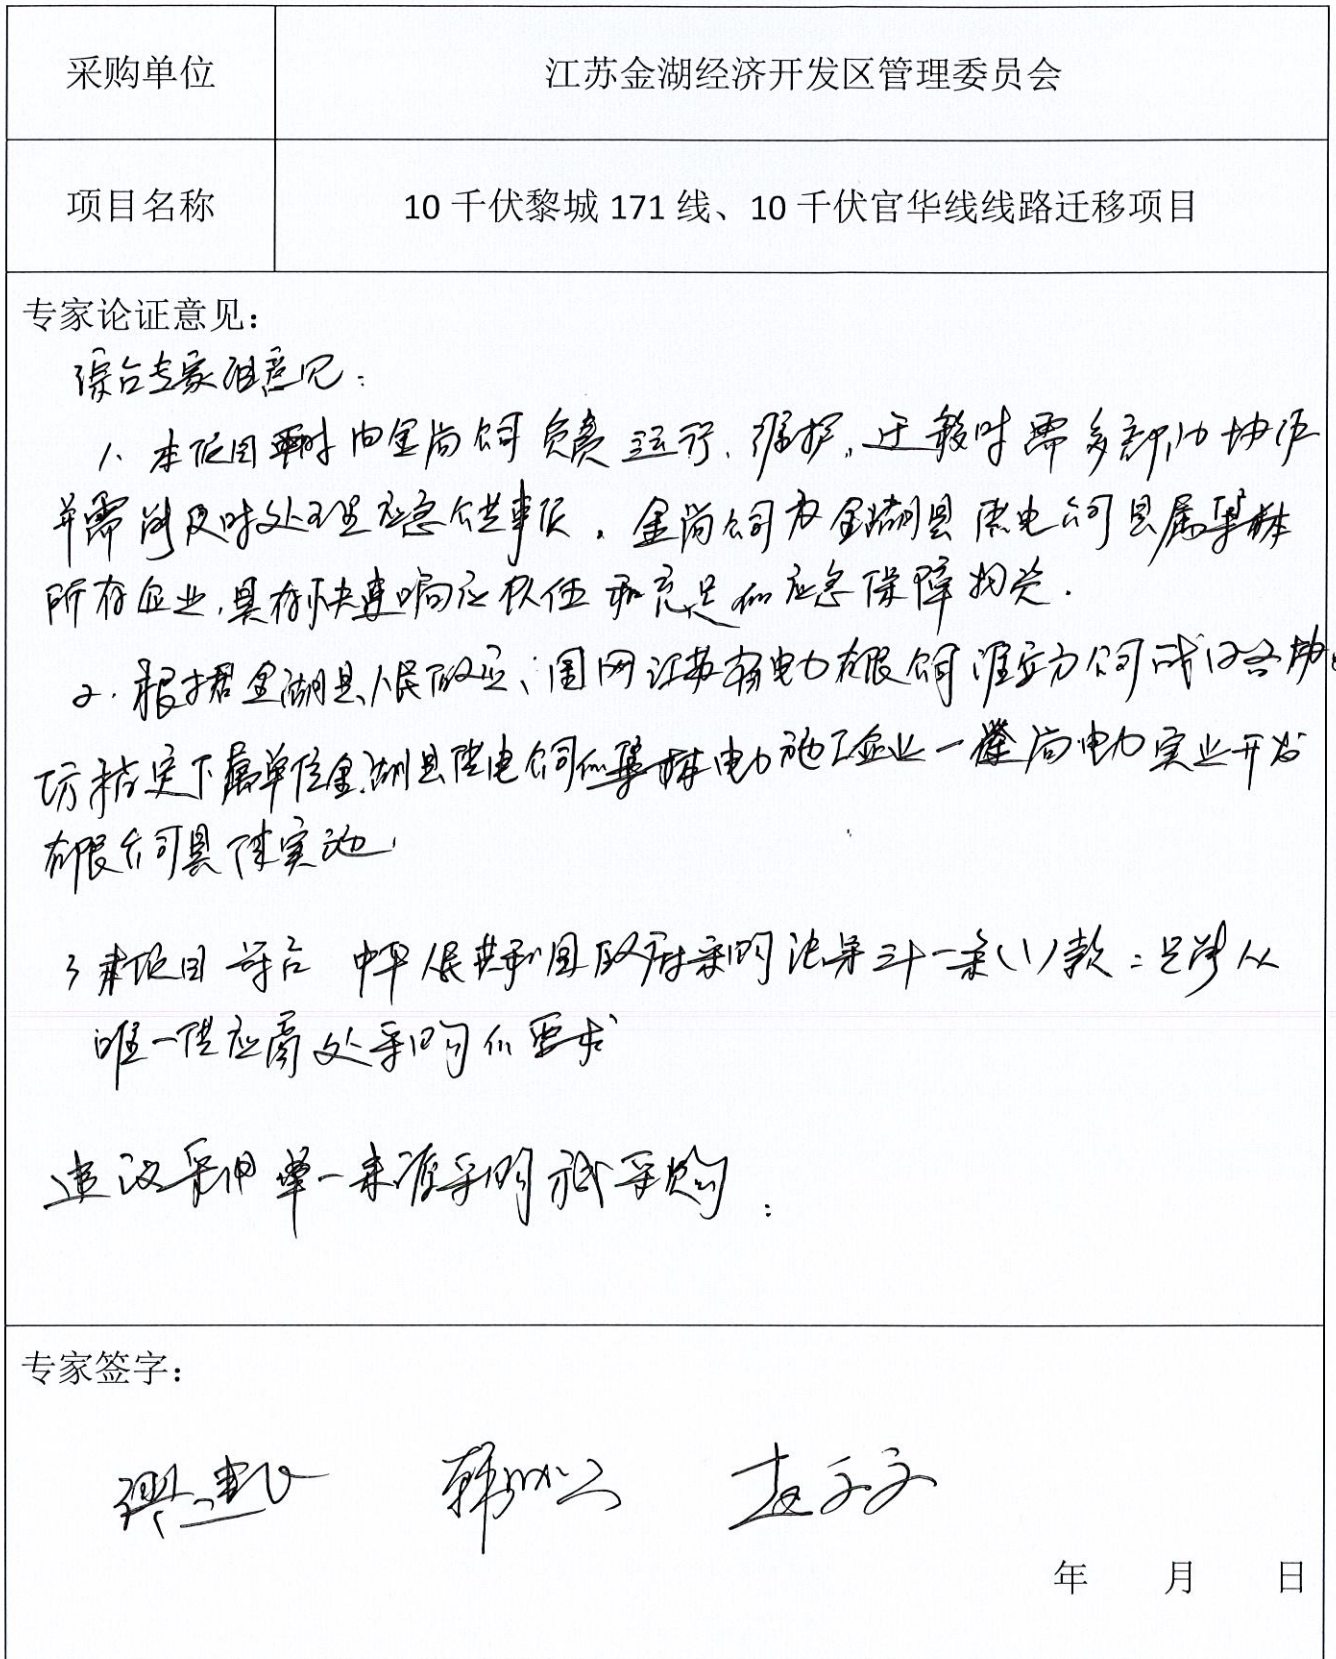 采购单位 江苏金湖经济开发区管理委员会
项目名称 10 千伏黎城 171 线、10 千伏官华线线路迁移项目
专家论证意见：
综合专家组意见：
1、本项目 由金尚公司负责运行、维护，迁移时需多部门协作
并需 及时处理应急 事项。金尚公司为金湖县供电公司县属集体
所有企业，具有快速响应队伍和充足的应急保障物资.
2. 根据金湖县人民政府、国网江苏省电力有限公司淮安分公司战略合作协
指定下属单位金湖县供电公司的集体电力施工企业一 尚电力实业开发
有限公司具体实施.
3 本项目符合 中华人民共和国政府采购法第三十一条(1)款：只能从
唯一供应商处采购的要求
建议采用单一来源采购方式采购
专家签字：
年 月 日